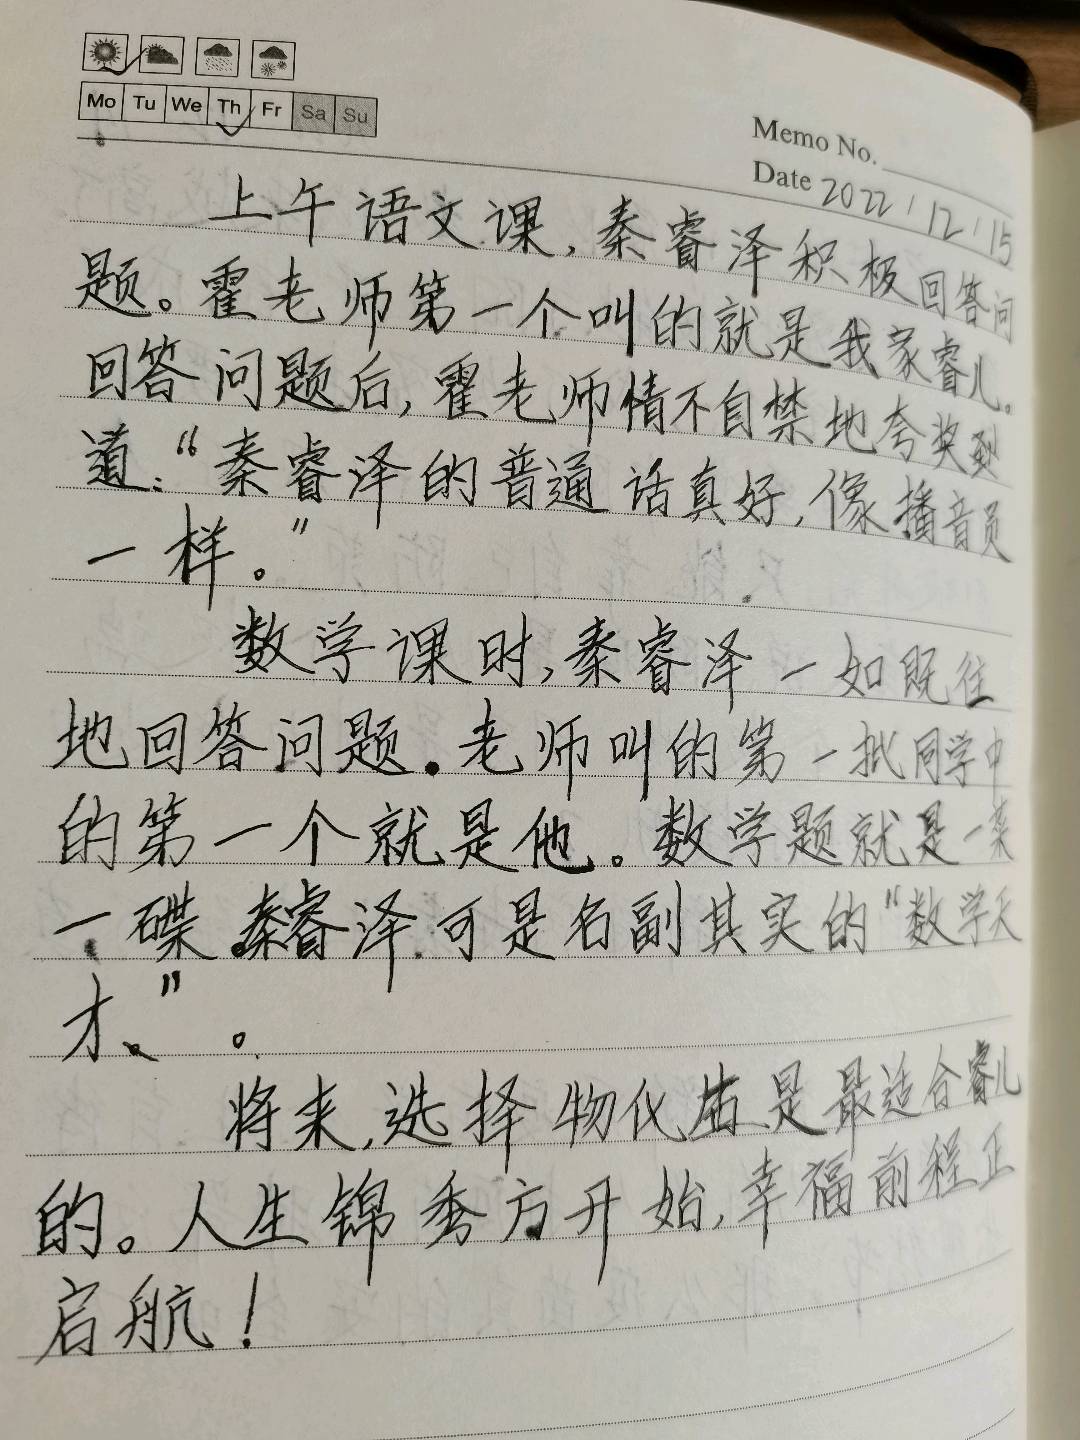 Mo Tu We Th Fr Sa Su
Memo No.
Date 2022/12/15
上午语文课,秦睿泽积极回答问
题。霍老师第一个叫的就是我家睿儿。
回答问题后,霍老师情不自禁地夸奖到
道:“秦睿泽的普通话真好,像播音员
一样。”
数学课时,秦睿泽一如既往
地回答问题.老师叫的第一批同学中
的第一个就是他。数学题就是一菜
一碟.秦睿泽可是名副其实的“数学天
才。”。
将来,选择物化是最适合睿儿
的。人生锦秀方开始,幸福前程正
启航!